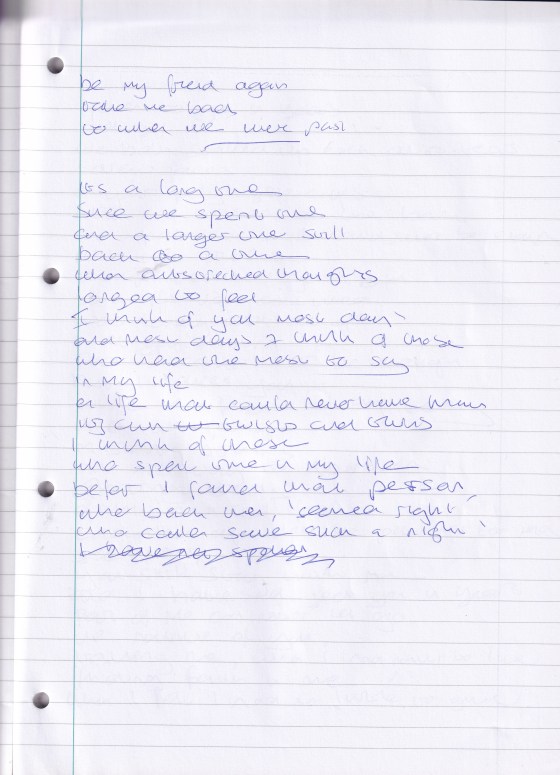 be my friend again
take me back
to when we were past
its a long time
since we spent time
and a longer time still
back to a time
when outstretched thoughts
longed to feel
I think of you most days
and most days I think of those
who had the most to say
in my life
a life that could never have known
its own twists and turns
I think of those
who spent time in my life
before I found that person
who back then, 'seemed right'
who could save such a night